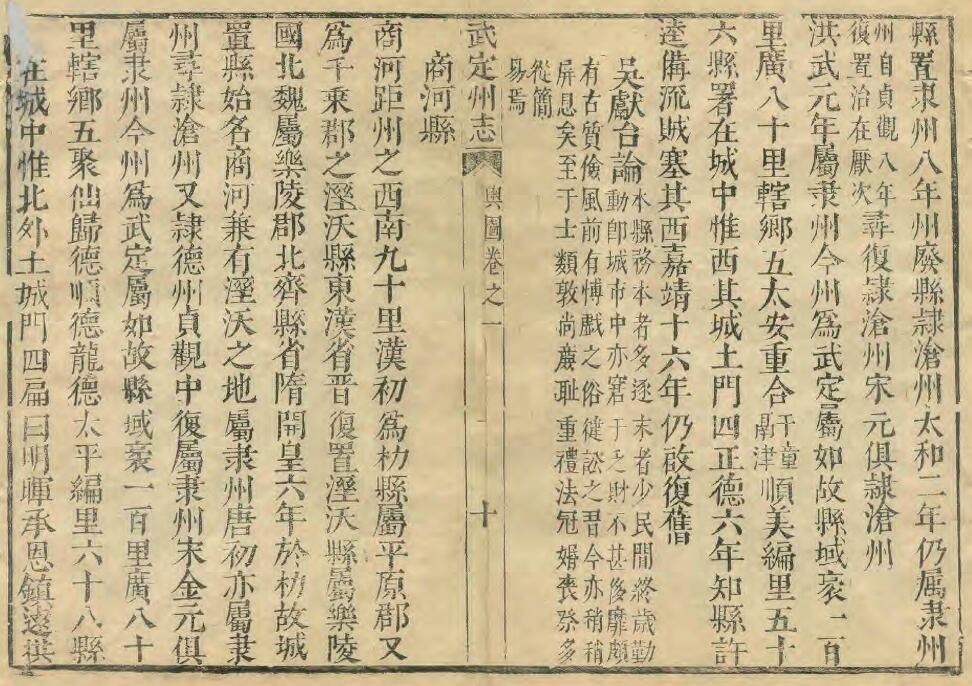 縣置隸州八年州廢縣隸滄州太和二年仍属隶州
州自貞觀八年
復置治在厭次
尋復隸滄州宋元俱隸滄州
洪武元年屬隶州今州為武定屬如故縣域袤一百
里廣八十里轄鄉五太安重合
千童
鬲津
順美編里五十
六縣署在城中惟西其城土門四正德六年知縣許
逵備流賊塞其西嘉靖十六年仍啟復舊
吳獻台論
本縣務本者多逐末者少民間終歲勤
動卽城市中亦窘于乏財不甚侈靡頗
有古質儉風前有愽戲之俗健訟之習今亦稍稍
屏息矣至于士類敦尚亷耻重禮法冠婚喪祭多
從簡
易焉
武定州志
輿圖卷之一
十
商河縣
商河距州之西南九十里漢初為朸縣屬平原郡又
為千乘郡之溼沃縣東漢省晋復置溼沃縣屬樂陵
國北魏屬樂陵郡北齊縣省隋開皇六年於朸故城
置縣始名商河兼有溼沃之地屬隶州唐初亦屬隶
州尋隸滄州又隸德州貞觀中復屬隶州宋金元俱
屬隶州今州為武定屬如故縣域袤一百里廣八十
里轄鄉五聚仙歸德順德龍德太平編里六十八縣
在城中惟北外土城門四扁曰明暉承恩鎮遠拱